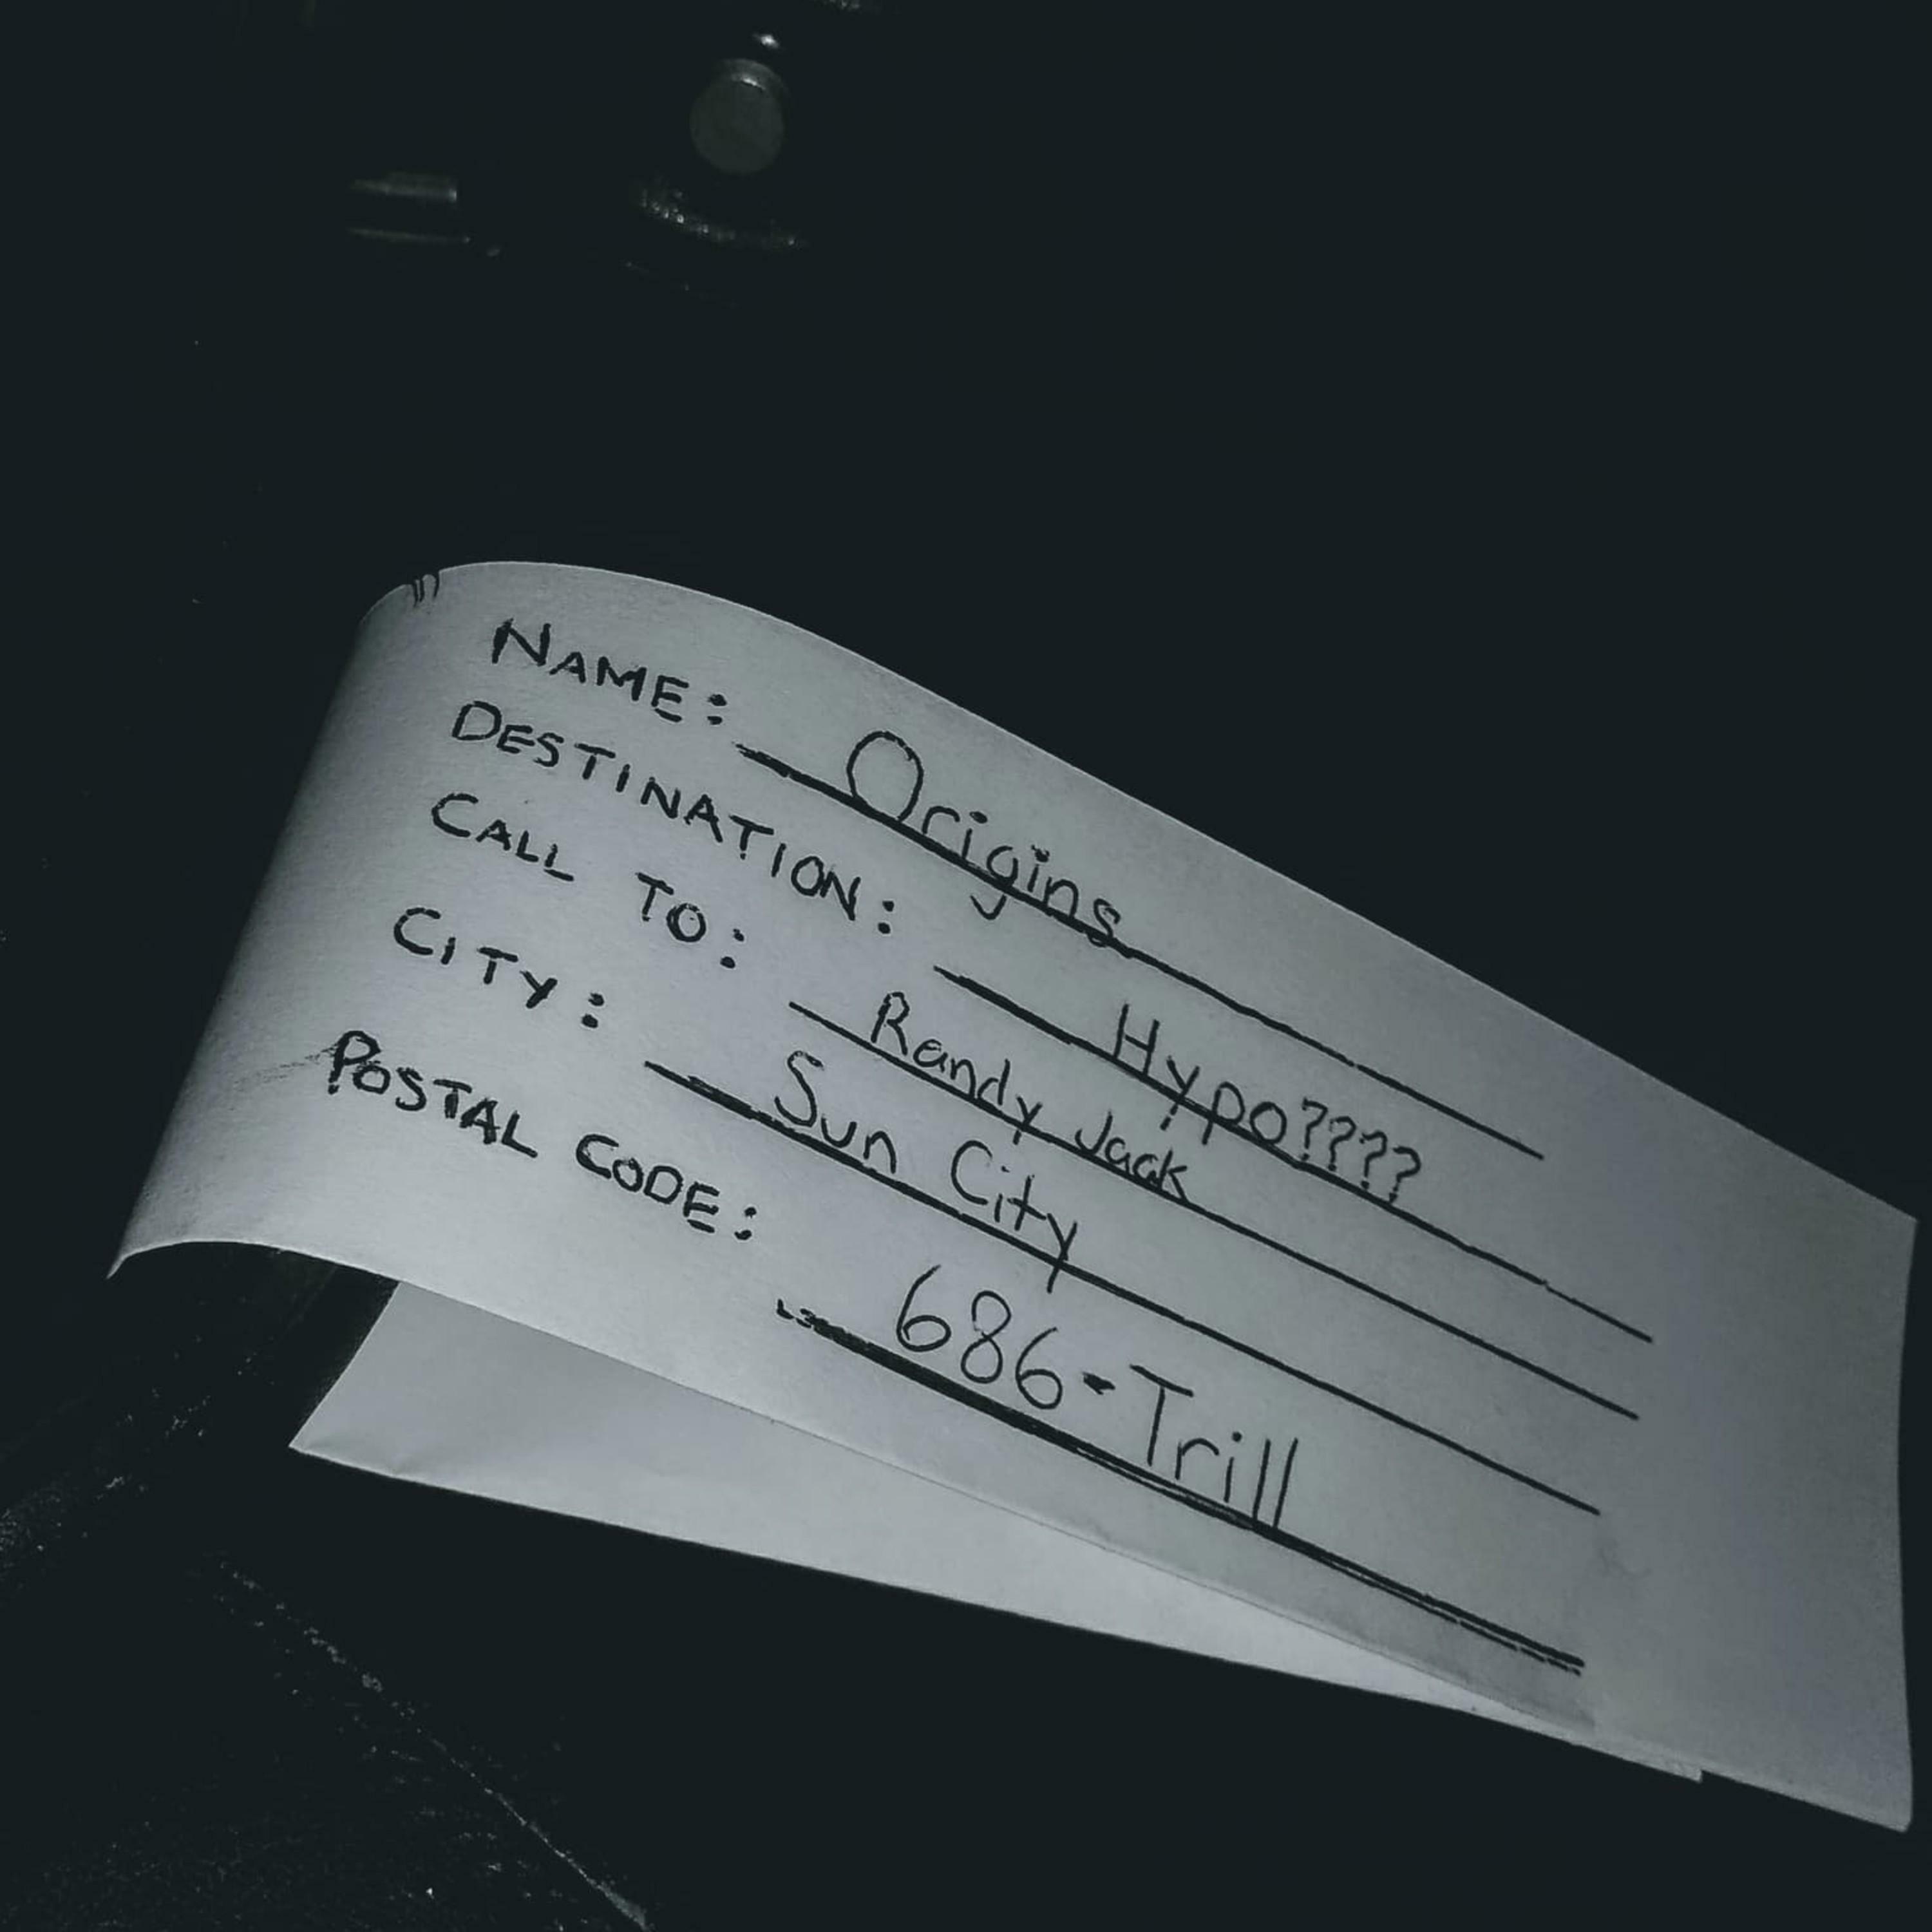 NAME: Origins
DESTINATION: Hypo????
CALL TO: Randy Jack
CITY: Sun City
POSTAL CODE: 686-Trill